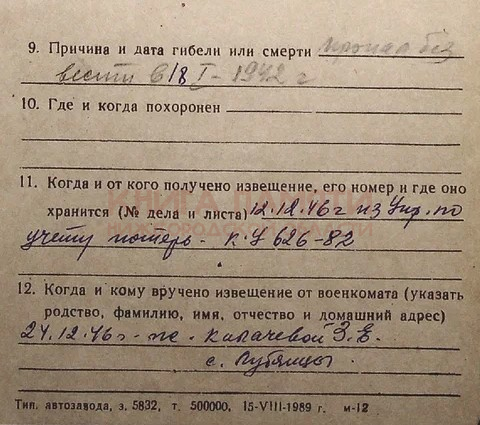 9. Причина и дата гибели или смерти пропал без
вести в 18 I - 1942 г
10. Где и когда похоронен
11. Когда и от кого получено извещение, его номер и где оно
хранится (№ дела и листа) 12.12.46 г из Упр. по
учету потерь - К-У 626-82
КНИГА ПАМЯТИ
12. Когда и кому вручено извещение от военкомата (указать
родство, фамилию, имя, отчество и домашний адрес)
24.12.46 г - же. Калачевой З. Е.
с. Лубянцы.
Тип. автозавода, з. 5832, т. 500000, 15-VIII-1989 г. м-12